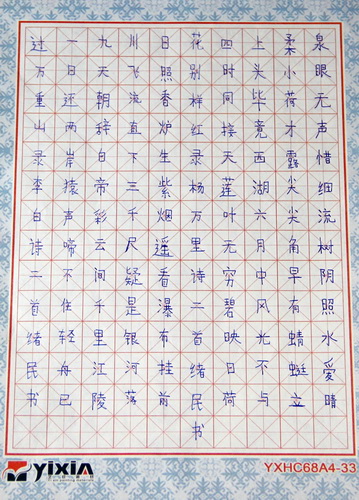 泉眼无声惜细流树阴照水爱晴
柔小荷才露尖尖角早有蜻蜓立
上头毕竟西湖六月中风光不与
四时同接天莲叶无穷碧映日荷
花别样红录杨万里诗二首绪民书
日照香炉生紫烟遥看瀑布挂前
川飞流直下三千尺疑是银河落
九天朝辞白帝彩云间千里江陵
一日还两岸猿声啼不住轻舟已
过万重山录李白诗二首绪民书
yixin
YXHC68A4-33